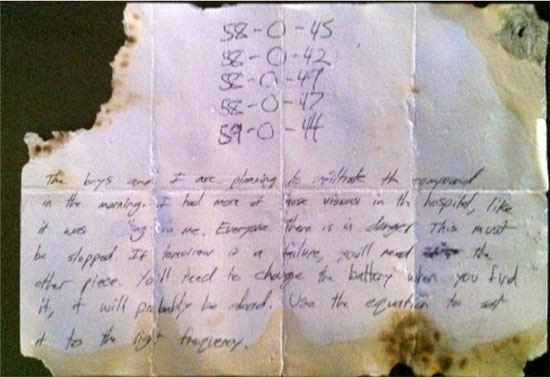 58-0-45
58-0-42
58-0-49
58-0-47
59-0-44
The boys and I are planning to infiltrate the compound
in the morning. I had more of those visions in the hospital, like
it was to me. Everyone there is in danger This must
be stopped. If tomorrow is a failure, you'll need the
other piece. You'll need to change the battery when you find
it, it will probably be dead. Use the equation to set
it to the right frequency.